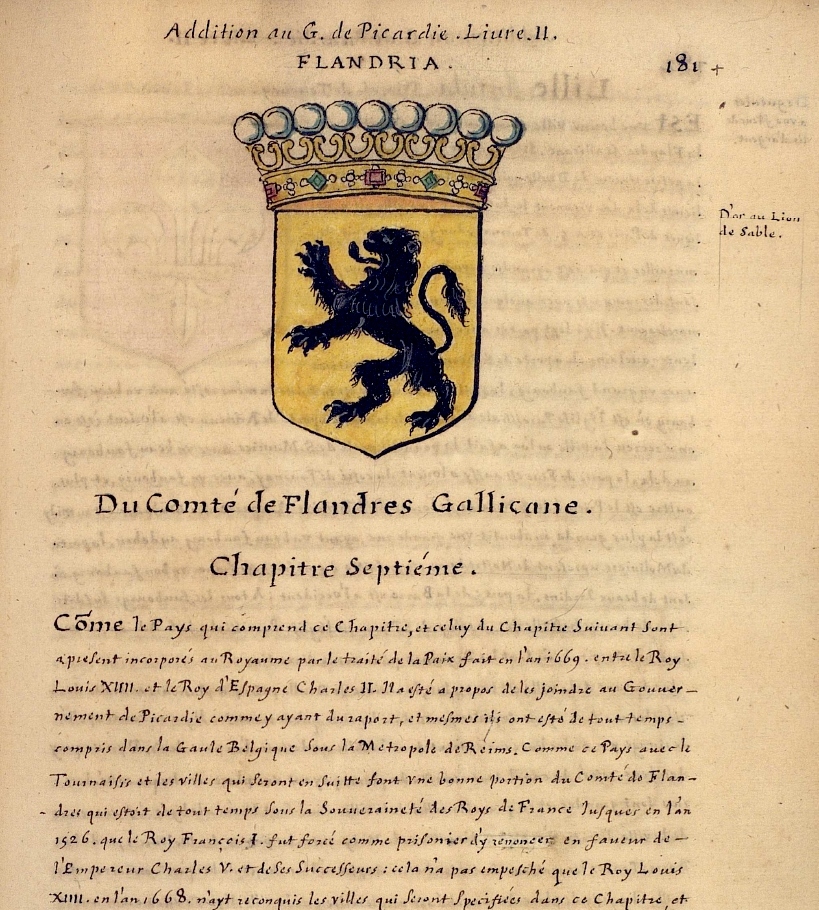 Addition au G. de Picardie . Liure . II .
FLANDRIA .
181 +
D'or au Lion
de Sable .
Du Comté de Flandres Gallicane .
Chapitre Septiéme .
Cõme le Pays qui comprend ce Chapitre, et celuy du Chapitre Suivant Sont
apresent incorporés au Royaume par le traité de la Paix fait en l'an 1669 . entre le Roy
Louis XIIII. et le Roy d'Espagne Charles II. Il a esté a propos de les joindre au Gouver-
nement de Picardie comme y ayant du raport, et mesmes ils ont esté de tout temps -
compris dans la Gaule Belgique Sous la Metropole de Reims. Comme ce Pays avec le
Tournaisis et les villes qui Seront en Suitte font vne bonne portion du Comté de Flan-
- dres qui estoit de tout temps Sous la Souveraineté des Roys de France Jusques en l'an
1526 . que le Roy François I. fut forcé comme prisonier d'y renoncer en faveur de -
l'Empereur Charles V. et de Ses Successeurs : cela n'a pas empesché que le Roy Louis
XIIII. en l'an 1668. n'ayt reconquis les villes qui Seront Specifiées dans ce Chapitre, et